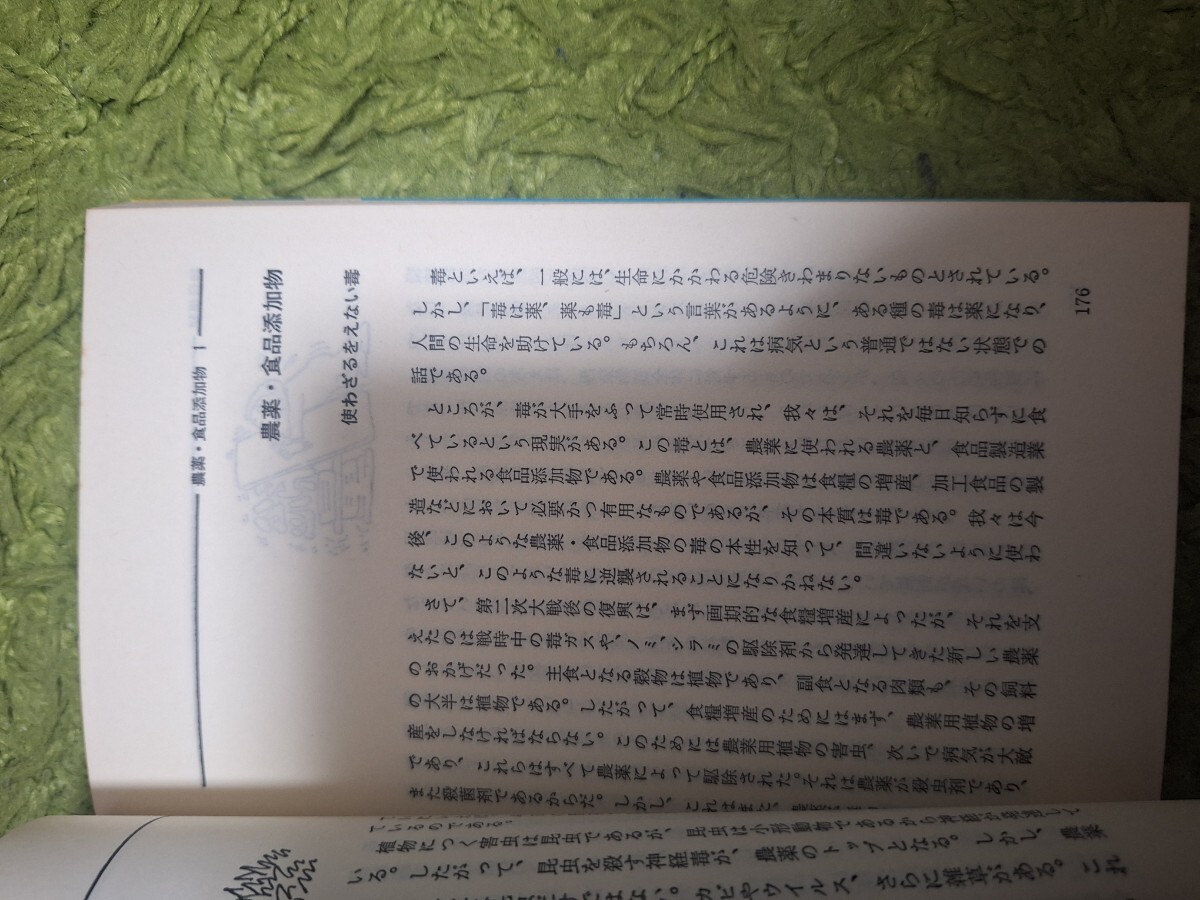 農薬・食品添加物 1
農薬・食品添加物
使わざるをえない毒
毒といえば、一般には、生命にかかわる危険きわまりないものとされている。
しかし、「毒は薬、薬も毒」という言葉があるように、ある種の毒は薬になり、
人間の生命を助けている。もちろん、これは病気という普通ではない状態での
話である。
ところが、毒が大手をふって常時使用され、我々は、それを毎日知らずに食
べているという現実がある。この毒とは、農業に使われる農薬と、食品製造業
で使われる食品添加物である。農薬や食品添加物は食糧の増産、加工食品の製
造などにおいて必要かつ有用なものであるが、その本質は毒である。我々は今
後、このような農薬・食品添加物の毒の本性を知って、間違いないように使わ
ないと、このような毒に逆襲されることになりかねない。
さて、第二次大戦後の復興は、まず画期的な食糧増産によったが、それを支
えたのは戦時中の毒ガスや、ノミ、シラミの駆除剤から発達してきた新しい農薬
のおかげだった。主食となる穀物は植物であり、副食となる肉類も、その飼料
の大半は植物である。したがって、食糧増産のためにはまず、農業用植物の増
産をしなければならない。このためには農業用植物の害虫、次いで病気が大敵
であり、これらはすべて農薬によって駆除された。それは農薬が殺虫剤であり、
また殺菌剤であるからだ。しかし、これはまに、
176
ているのである。
植物につく害虫は昆虫であるが、昆虫は小形動物であるから神経が発達して
いる。したがって、昆虫を殺す神経毒が、農薬のトップとなる。しかし、農薬
ではない。カビやウイルス、さらに雑草がある。これ